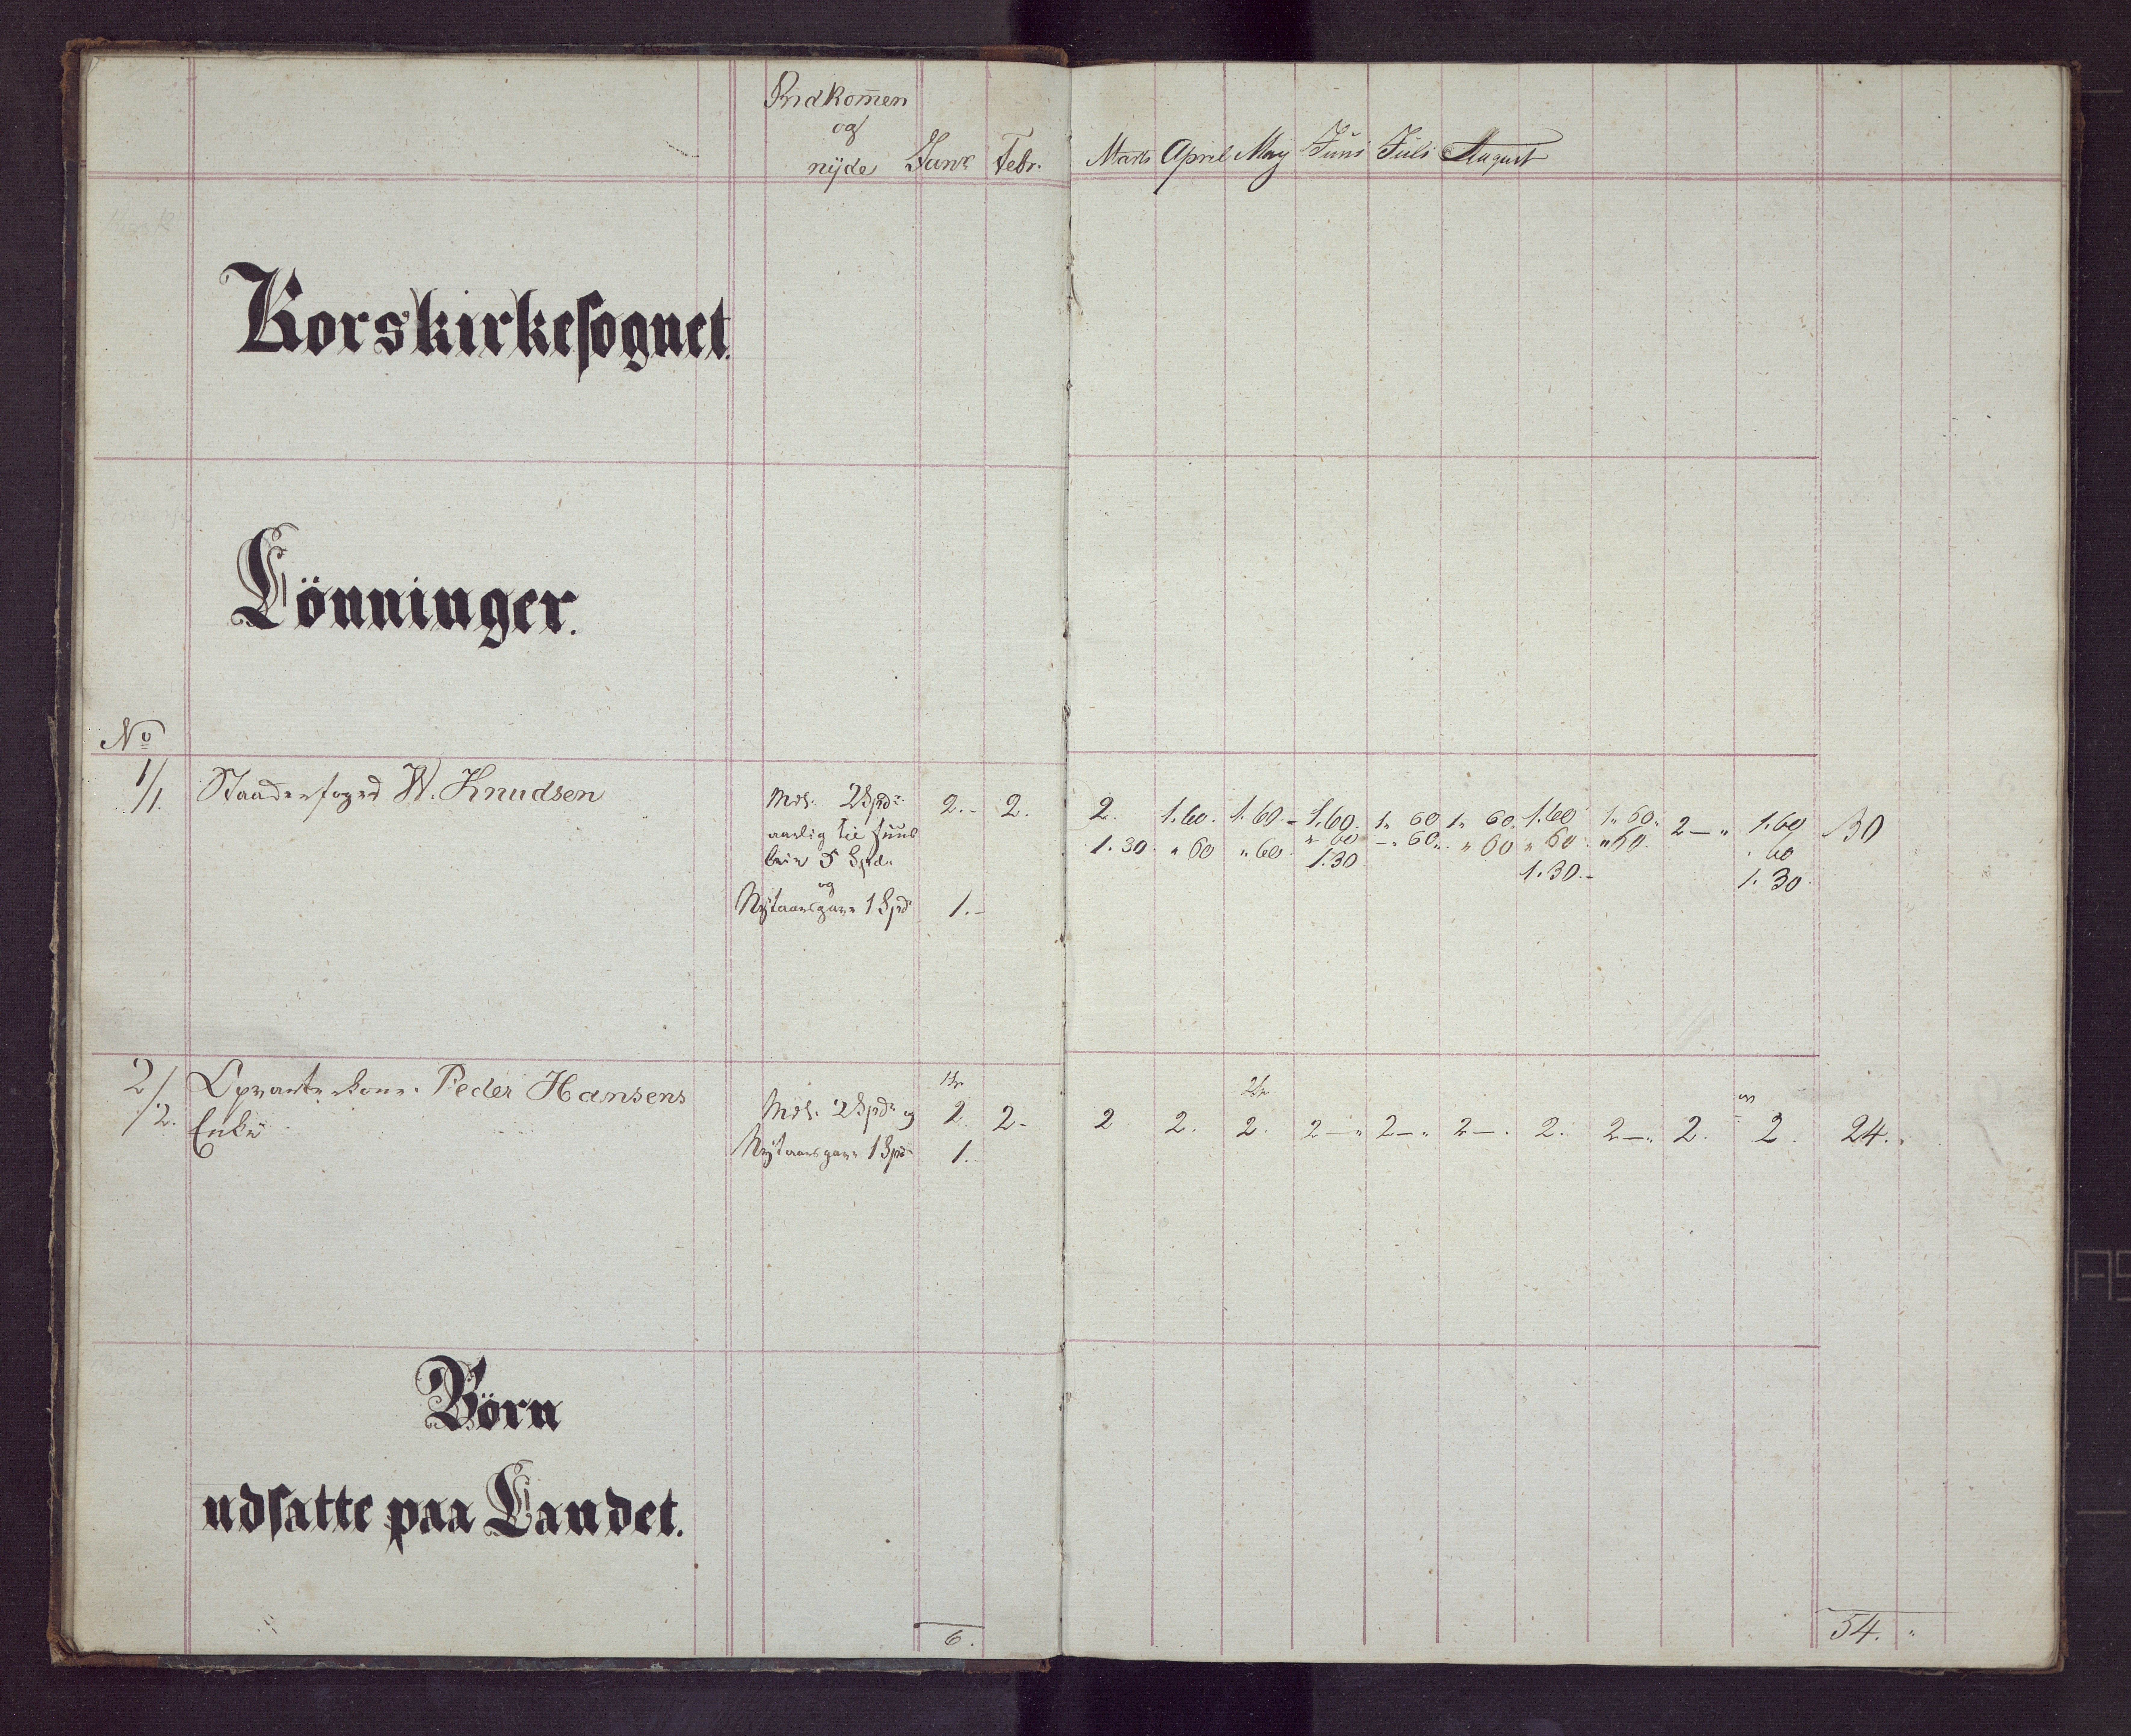 Indkom̅en
og
nÿde Janr Febr. Marts April May Juni Juli August
Korskirkesognet.
Lönninger.
No
1/1. Staaderfoged W. Knudsen Mdl. 2 Spdr 2.- 2. 2. 1.60. 1.60.- 1.60. 1 " 60 1 " 60. 1.60 1 " 60. 2 — " 1.60 30
aarlig til Huus 1.30. " 60 " 60. " 60 - " 60. " 60 " 60. " 60. 60
leie 5 Spd. 1.30. 1.30.- 1.30.
og
Nÿtaarsgave 1 Spd 1.-
2/2. Opvarterkone. Peder Hansens
Enke Mdl. 2 Spdr og 2. 2- 2. 2. 2. 2 — " 2 — " 2 —. 2. 2 — ". 2. 2. 24. "
Nÿtaarsgave 1 Spd 1.-
Börn
udsatte paa Landet.
6. 54. "